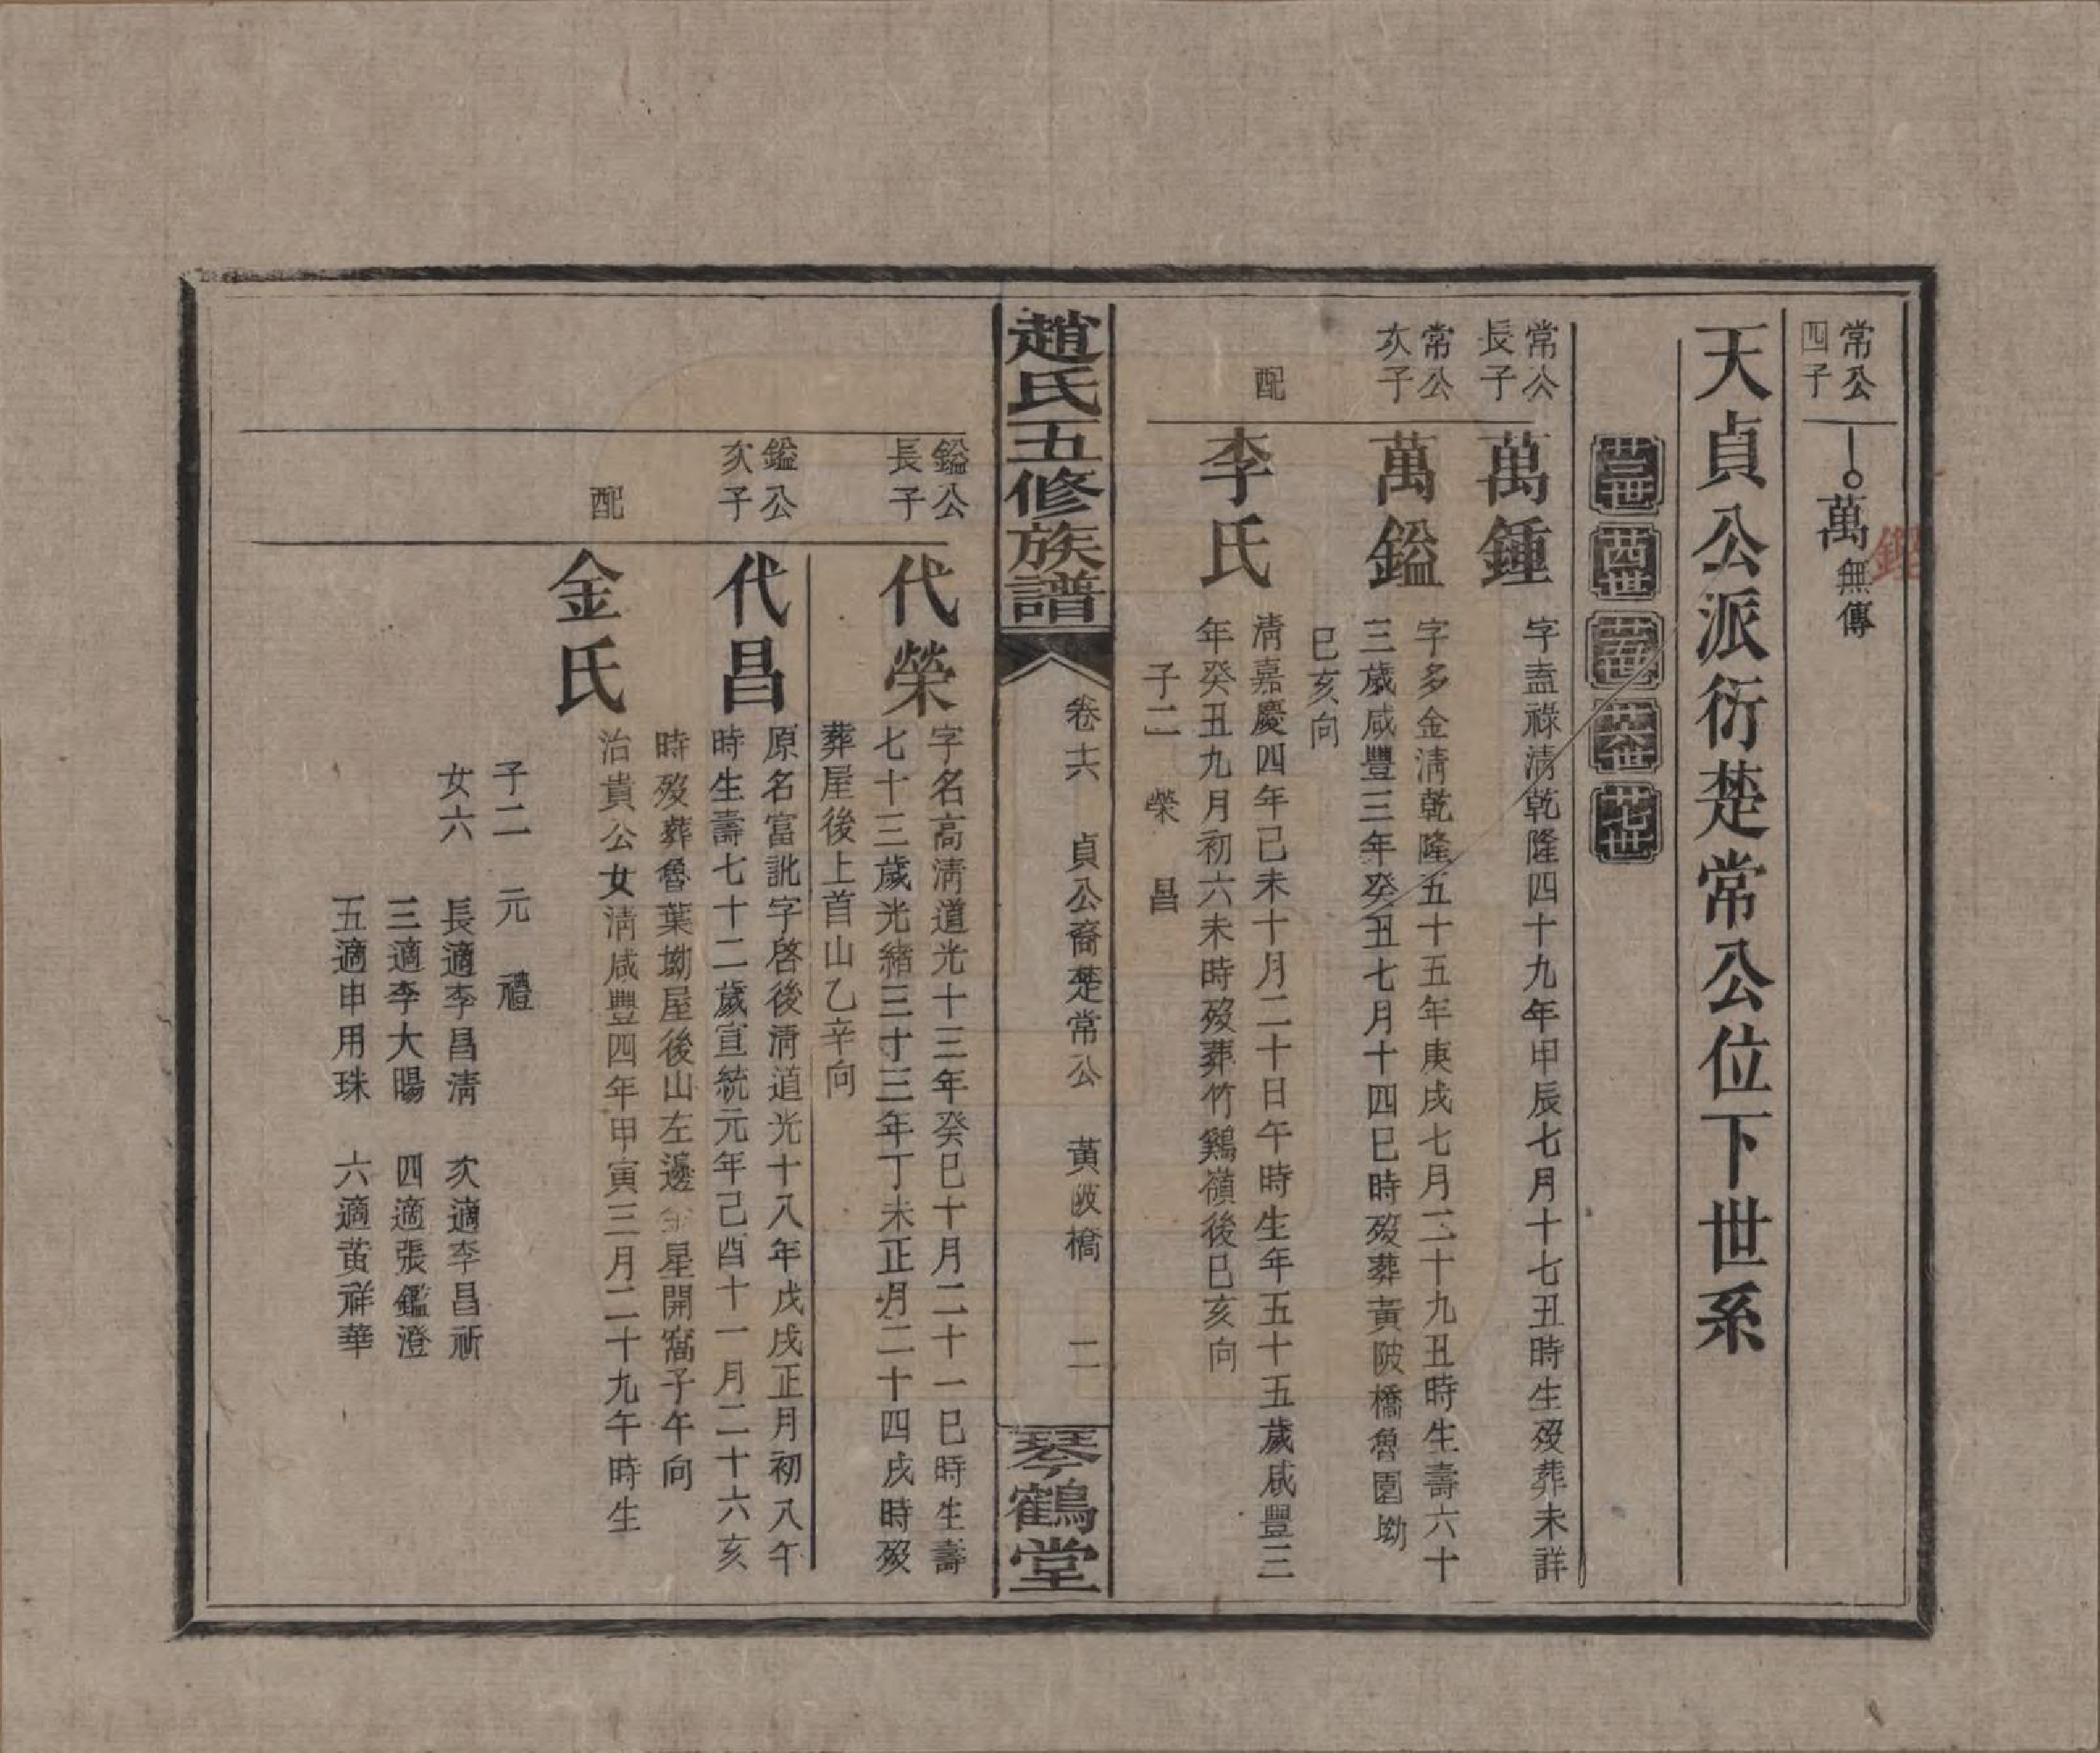 常公
四子
萬
鏗
無傳
天貞公派衍楚常公位下世系
卅三世
卅四世
卅五世
卅六世
卅七世
常公
長子
萬鍾
字盍祿清乾隆四十九年甲辰七月十七丑時生歿葬未詳
常公
次子
萬鎰
字多金清乾隆五十五年庚戌七月二十九丑時生壽六十
三歲咸豐三年癸丑七月十四巳時歿葬黃陂橋魯園坳
巳亥向
配
李氏
清嘉慶四年己未十月二十日午時生年五十五歲咸豐三
年癸丑九月初六未時歿葬竹鷄嶺後巳亥向
子二 榮 昌
趙氏五修族譜
卷十六 貞公裔楚常公 黃陂橋 二
琴鶴堂
鎰公
長子
代榮
字名高清道光十三年癸巳十月二十一巳時生壽
七十三歲光緒三十三年丁未正月二十四戌時歿
葬屋後上首山乙辛向
鎰公
次子
代昌
原名富訛字啓後清道光十八年戊戌正月初八午
時生壽七十二歲宣統元年己酉十一月二十六亥
時歿葬魯葉坳屋後山左邊金星開窩子午向
配
金氏
治貴公女清咸豐四年甲寅三月二十九午時生
子二 元 禮
女六 長適李昌清 次適李昌祈
三適李大暘 四適張鑑澄
五適申用珠 六適黃祥華